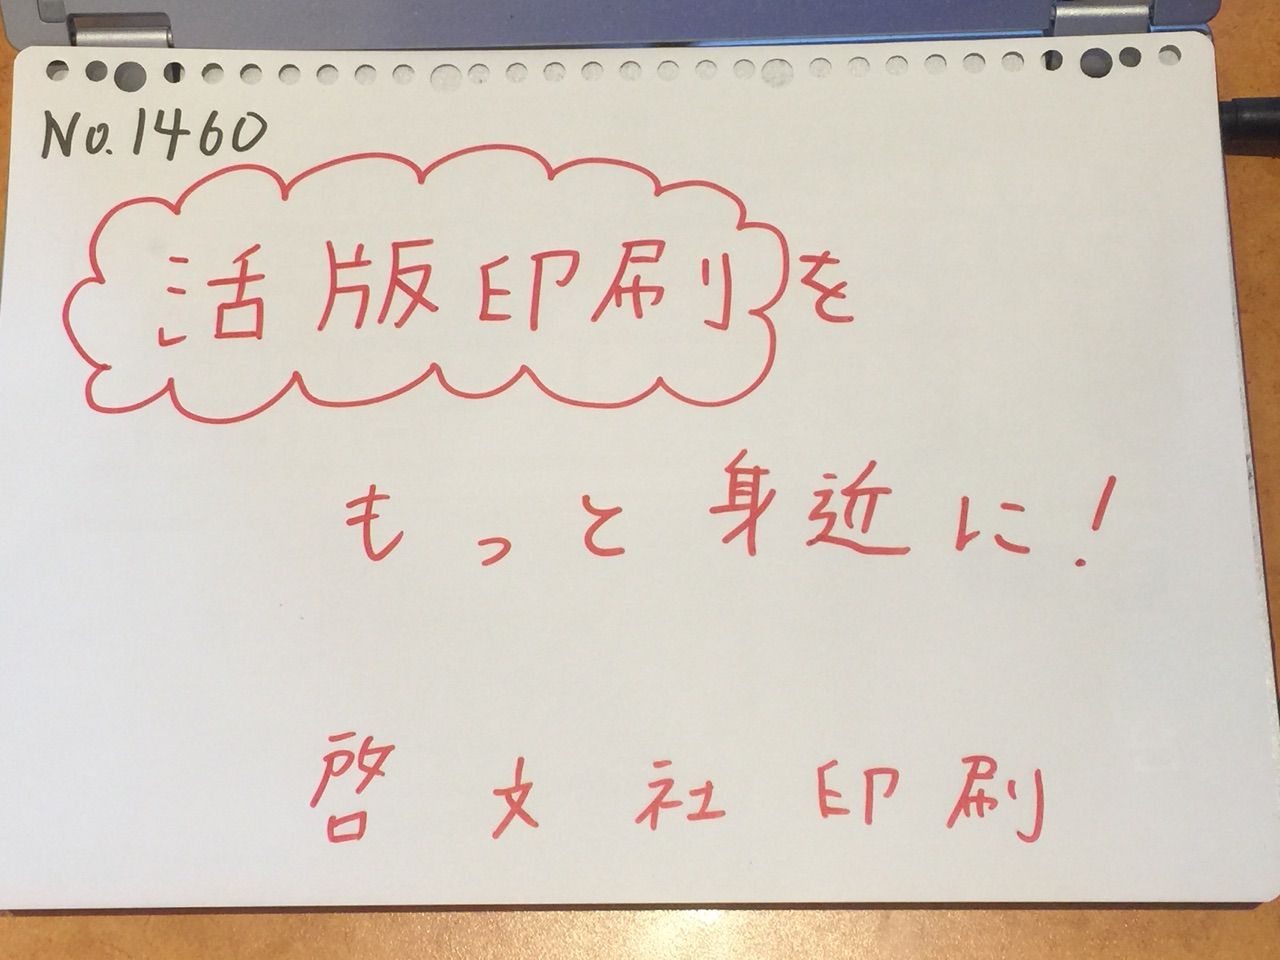 No.1460
活版印刷を
もっと身近に!
啓文社印刷